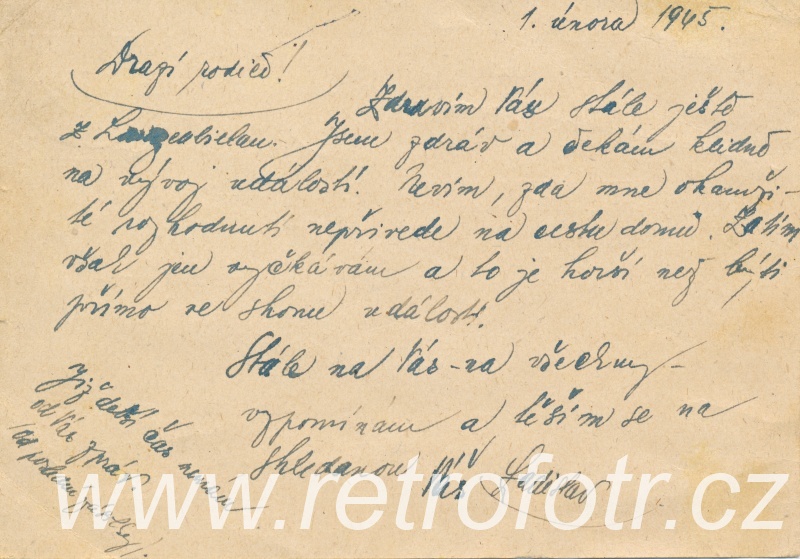 1. února 1945.
Drazí rodiče!
Zdravím Vás stále ještě
z Langenbielau. Jsem zdráv a čekám klidně
na vývoj událostí. Nevím, zda mne okamži-
té rozhodnutí nepřivede na cestu domů. Zatím
však jen vyčkávám a to je horší než býti
přímo ve shonu událostí.
Stále na Vás - na všechny -
vzpomínám a těším se na
shledanou Váš Ladislav
Již delší čas nemám
od Vás zpráv.
www.retrofotr.cz